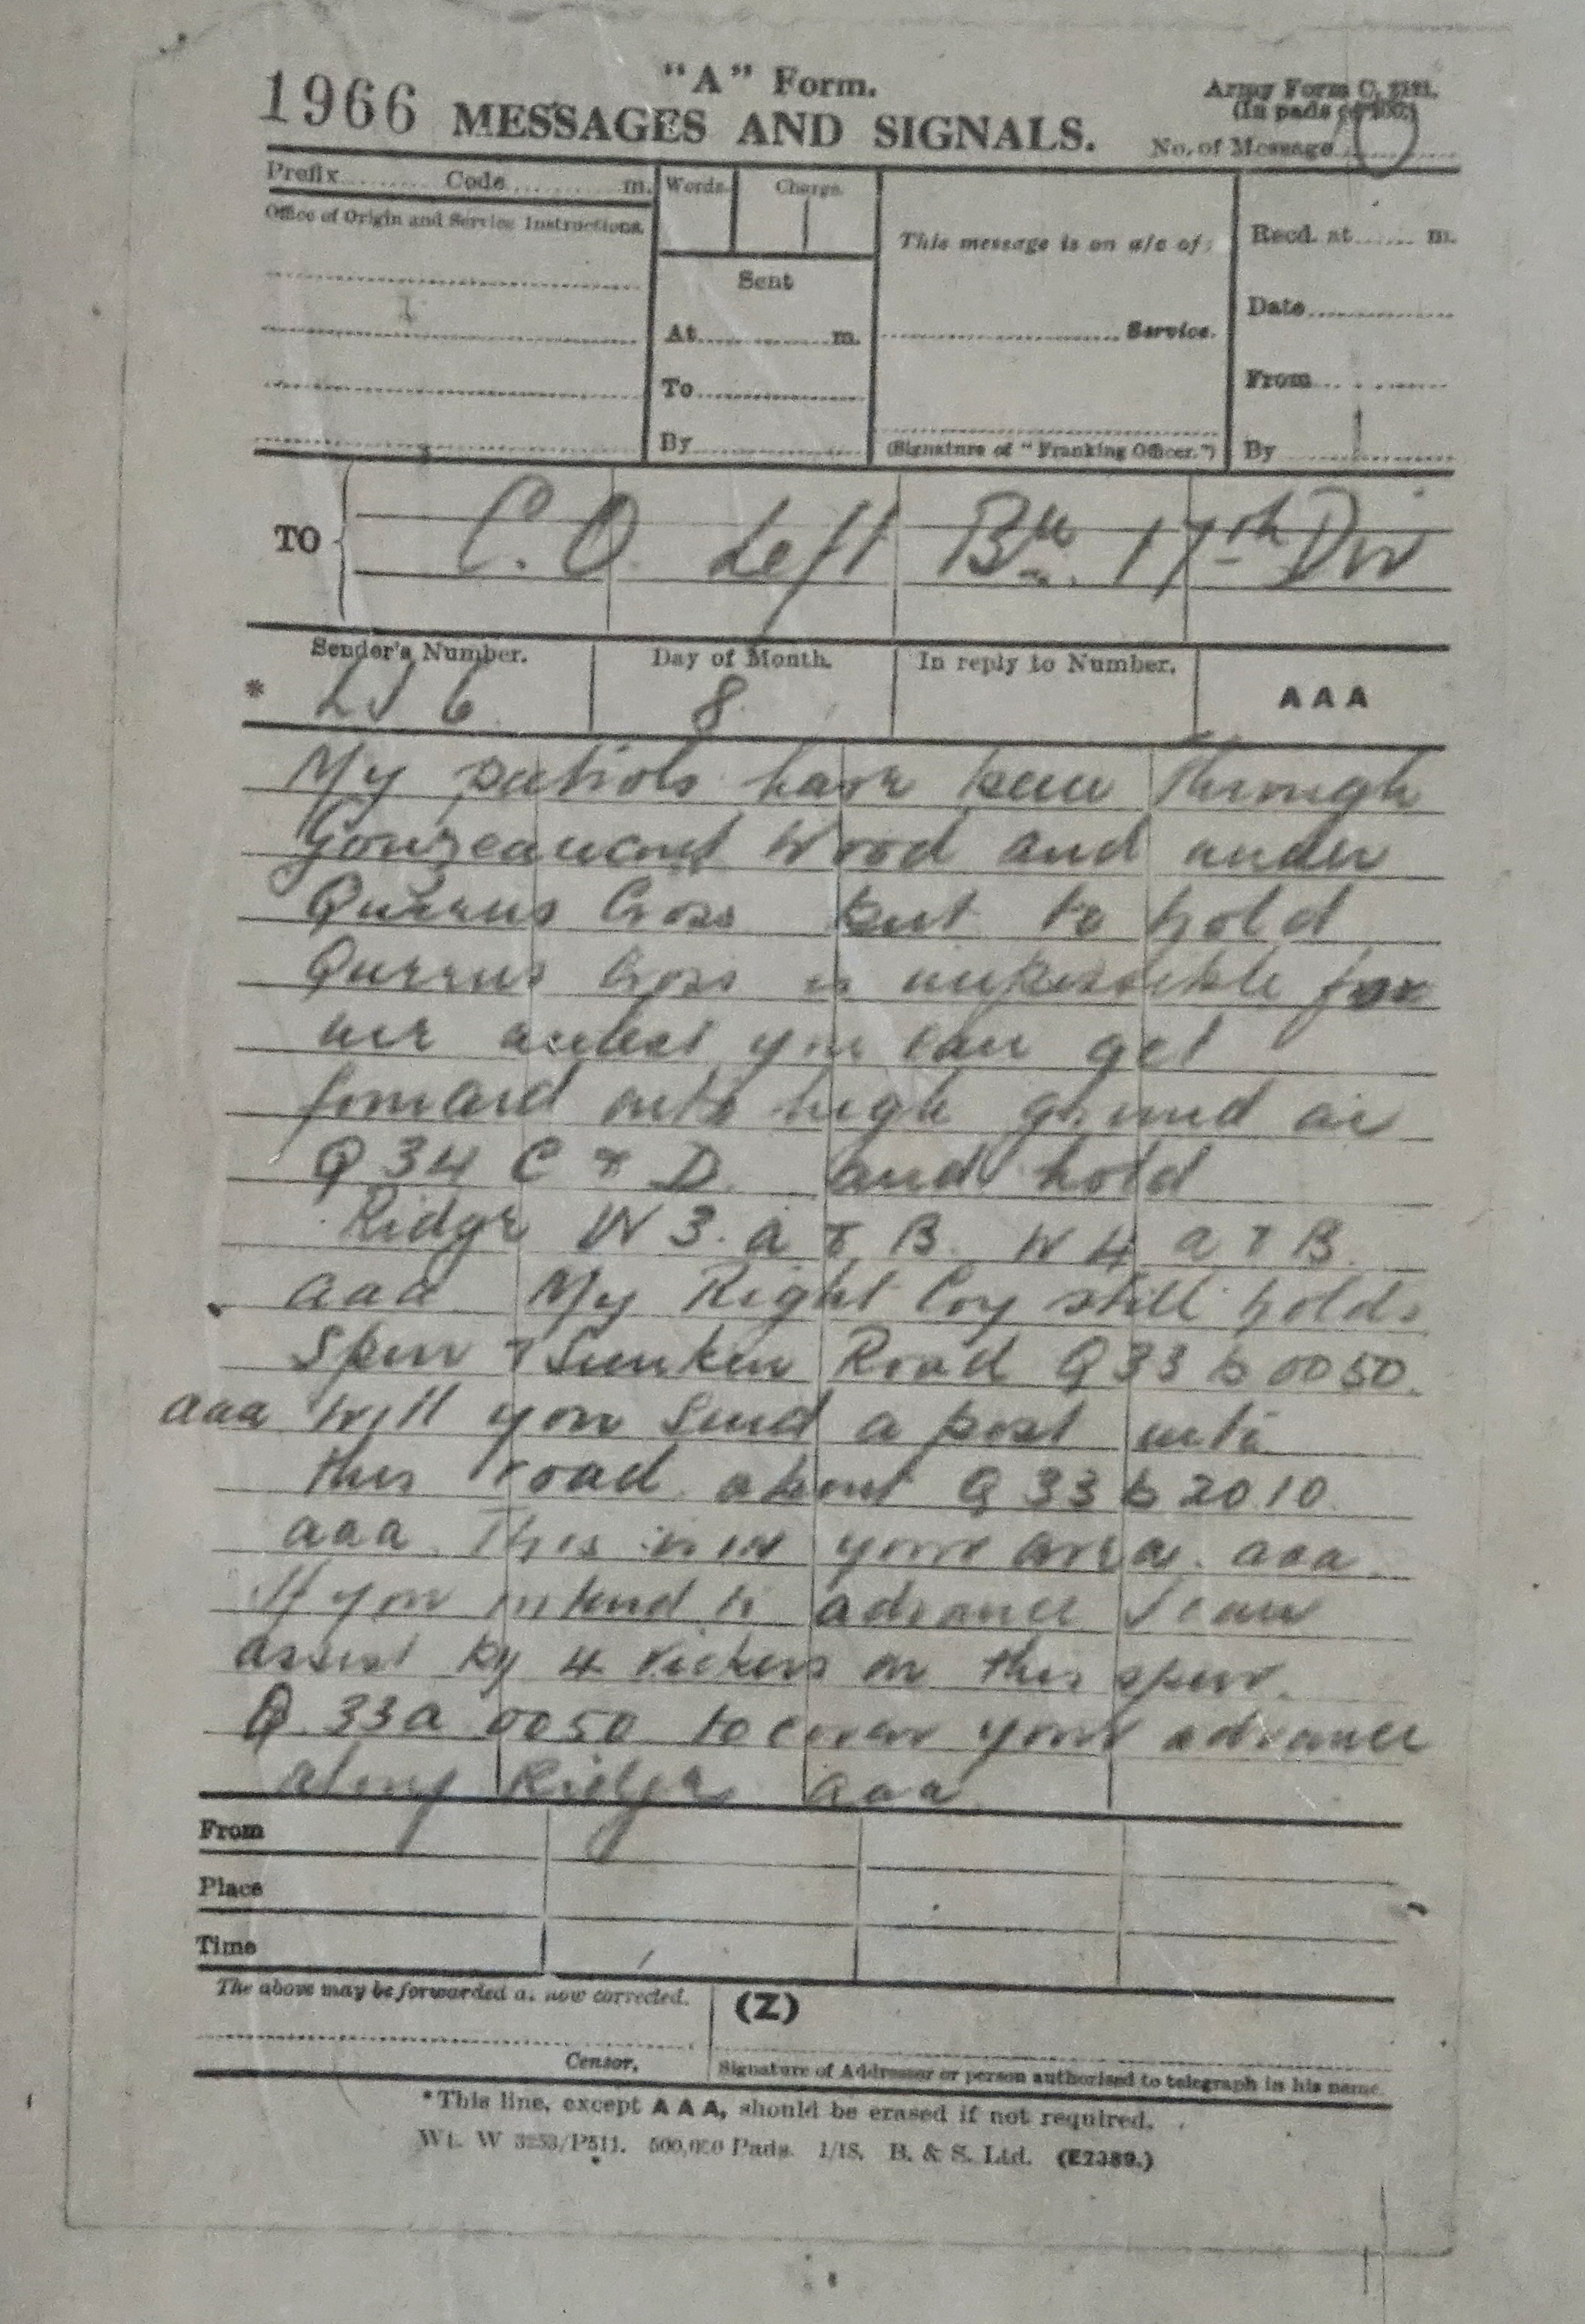 1966
"A" Form.
MESSAGES AND SIGNALS.
Army Form C. 2121.
(In pads of 100.)
No. of Message
Prefix Code m.
Words. Charge.
Office of Origin and Service Instructions.
This message is on a/c of:
Recd. at m.
Sent
Date
At m.
Service.
To
From
By
(Signature of "Franking Officer.")
By
TO C.O. Left Bn. 17th Div
Sender's Number. Day of Month. In reply to Number.
* LJ 6 8 AAA
My patrols have been through
Gouzeaucourt Wood and under
Queens Cross but to hold
Queens Cross is impossible for
me unless you can get
forward onto high ground in
Q 34 C & D. and hold
Ridge W 3. a & B. W 4 a & B.
aaa My Right Coy still holds
Spur & Sunken Road Q 33 b 0050.
aaa Will you send a post into
this road about Q 33 b 20.10.
aaa. This is in your area. aaa.
If you intend to advance I can
assist by 4 Vickers on this spur.
Q. 33a 0050 to cover your advance
along Ridge aaa.
From
Place
Time
The above may be forwarded as now corrected. (Z)
Censor. Signature of Addressor or person authorised to telegraph in his name.
*This line, except AAA, should be erased if not required.
Wt. W 3253/P511. 500,000 Pads. 1/18. B. & S. Ltd. (E2389.)